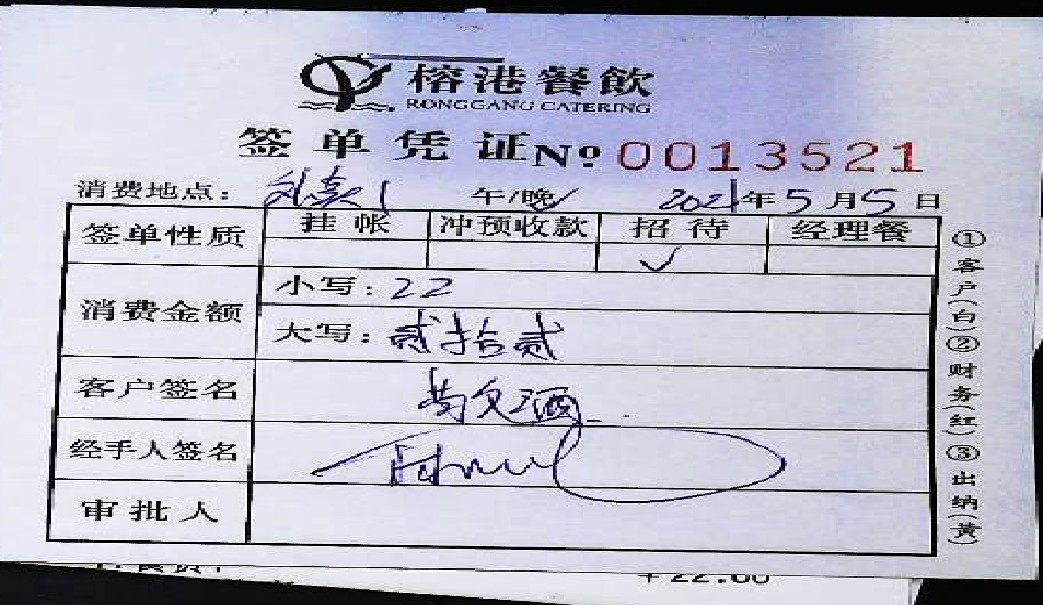 榕港餐飲
RONGGANG CATERING
签单凭证 № 0013521
消费地点： 午/晚 2021年5月5日
签单性质 挂帐 冲预收款 招待 经理餐
✓
消费金额 小写：22
大写：贰拾贰
客户签名
经手人签名
审批人
①客户(白)②财务(红)③出纳(黄)